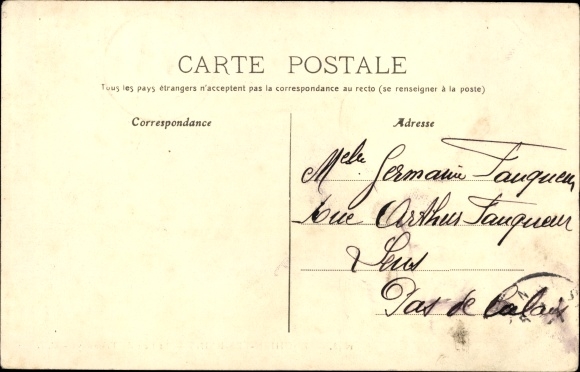 CARTE POSTALE
Tous les pays étrangers n'acceptent pas la correspondance au recto (se renseigner à la poste)
Correspondance
Adresse
Melle Germaine Tanqueur
Rue Arthur Tanqueur
Lens
Pas de Calais